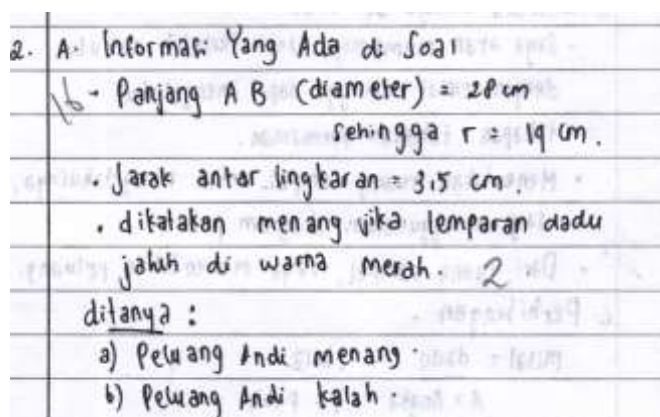 2. A. Informasi Yang Ada di Soal
16 - Panjang AB (diameter) = 28 cm
sehingga r = 14 cm.
• Jarak antar lingkaran = 3,5 cm.
• dikatakan menang jika lemparan dadu
jatuh di warna merah. 2
ditanya :
a) Peluang Andi menang.
b) Peluang Andi kalah.